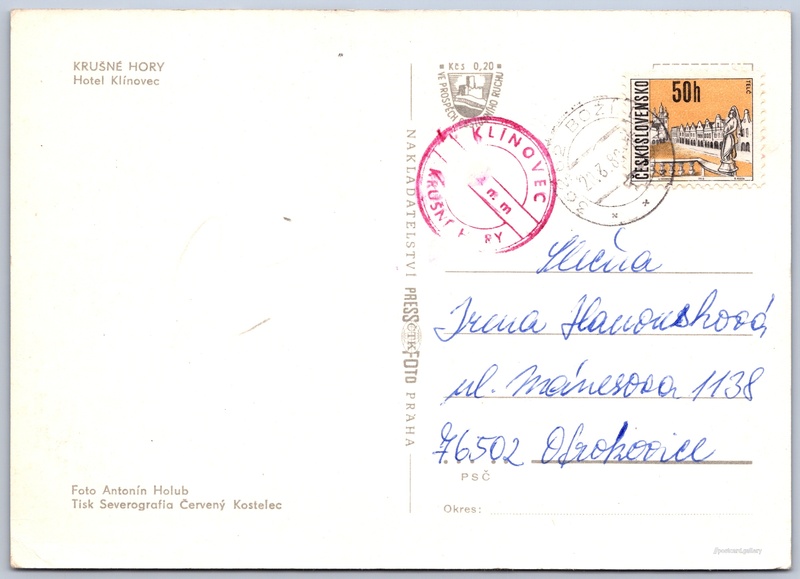 KRUŠNÉ HORY
Hotel Klínovec
Kčs 0,20
VE PROSPĚCH
RUCHU
KLÍNOVEC
KRUŠNÉ HORY
m m
BOŽÍ
21.3.
ČESKOSLOVENSKO
50h
TELČ
NAKLADATELSTVÍ PRESSFOTO PRAHA
ČTK
Slečna
Irena Hanouskova
ul. Mánesova 1138
76502 Otrokovice
PSČ
Okres:
Foto Antonín Holub
Tisk Severografia Červený Kostelec